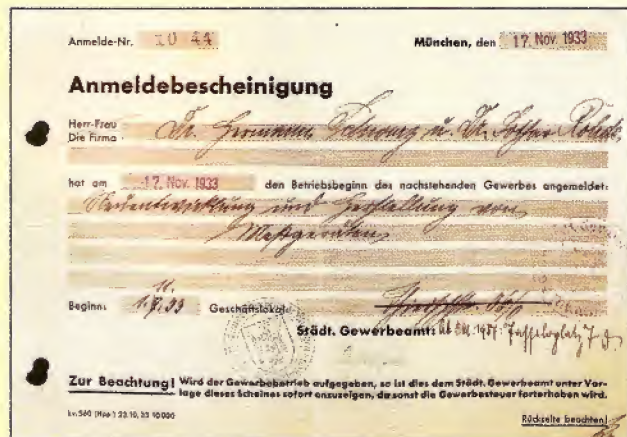 Anmelde-Nr. 10 44
München, den 17. Nov. 1933
Anmeldebescheinigung
Herr-Frau Dr. Hermann Schwarz u. Dr. Lothar Rohde
Die Firma
hat am -17. Nov. 1933 den Betriebsbeginn des nachstehenden Gewerbes angemeldet:
Neuentwicklung und Herstellung von
Meßgeräten
11.
Beginn: 1.7.33 Geschäftslokal:
Städt. Gewerbeamt:
Zur Beachtung! Wird der Gewerbebetrieb aufgegeben, so ist dies dem Städt. Gewerbeamt unter Vor-
lage dieses Scheines sofort anzuzeigen, da sonst die Gewerbesteuer forterhoben wird.
Rückseite beachten!